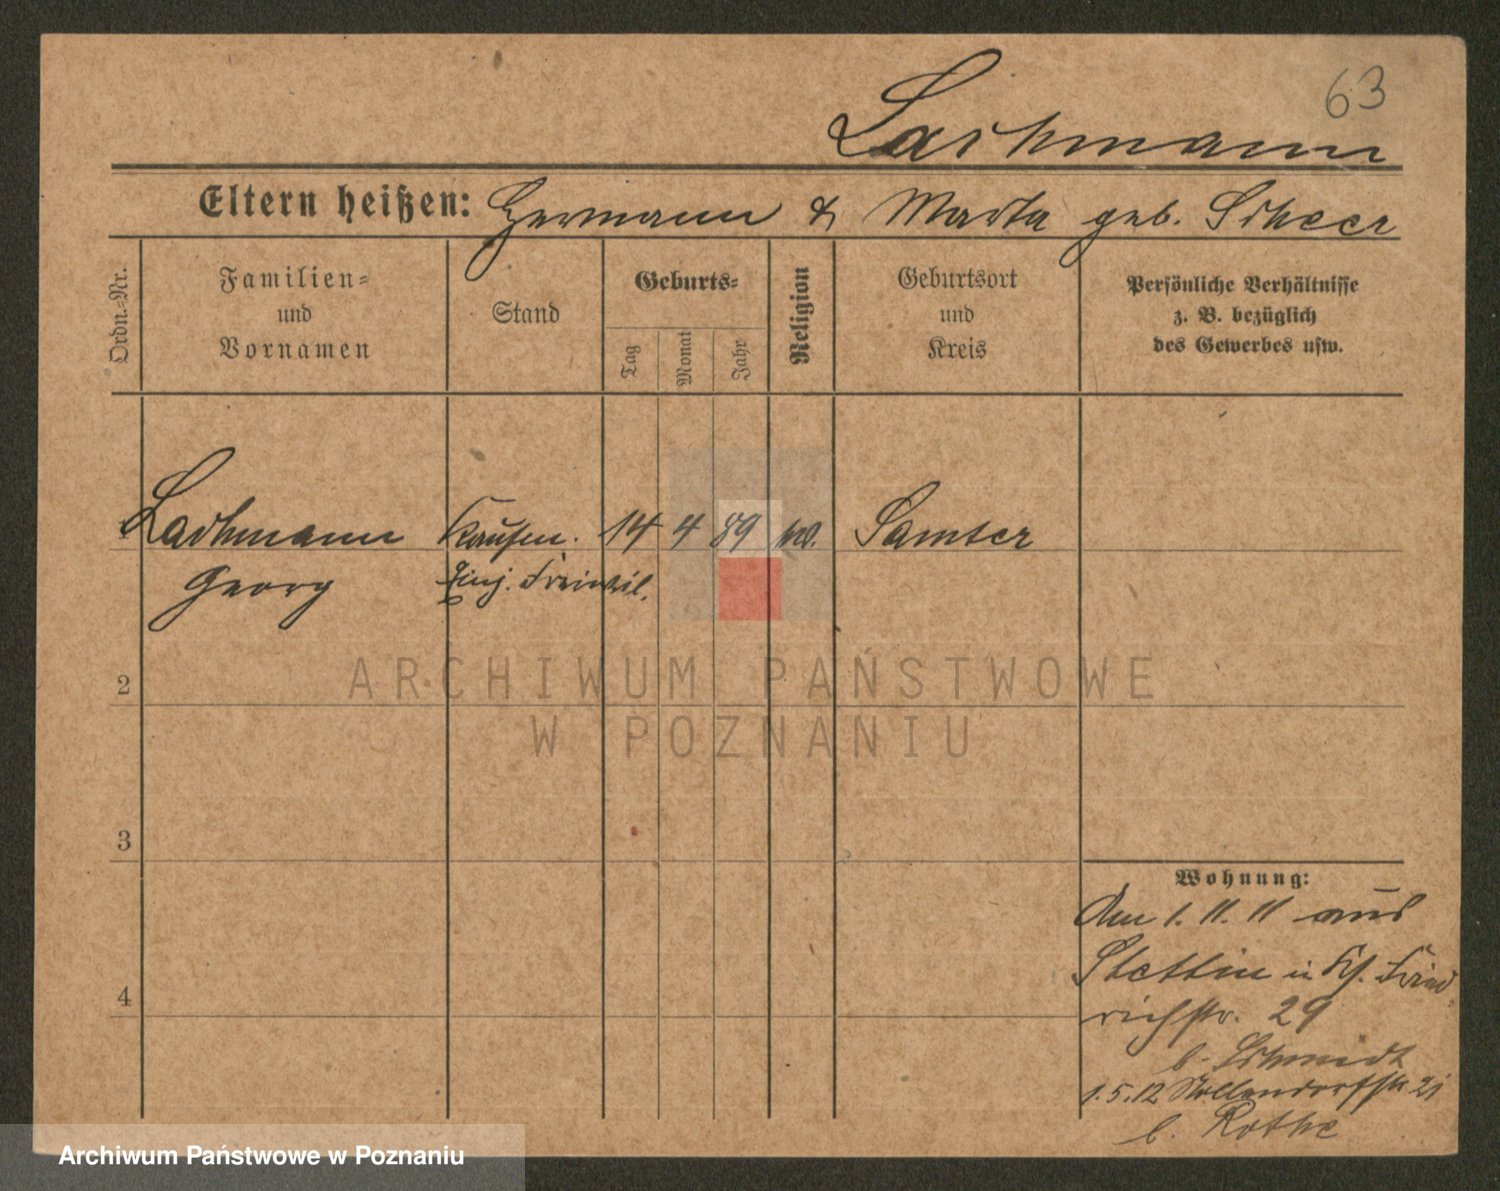 63
Lachmann
Eltern heißen: Hermann & Marta geb. Scheer
Ordn.-Nr.
Familien-
und
Vornamen
Stand
Geburts-
Tag
Monat
Jahr
Religion
Geburtsort
und
Kreis
Persönliche Verhältnisse
z. B. bezüglich
des Gewerbes usw.
Lachmann Kaufm. 14 4 89 Samter
Georg Einj. Freiwil.
2
3
4
Wohnung:
Am 1. 11. 11 aus
Stettin in Fried-
richstr. 29
b. Schmidt
1.5.12 Nollendorfstr 21
b. Rothe
ARCHIWUM PAŃSTWOWE
W POZNANIU
Archiwum Państwowe w Poznaniu